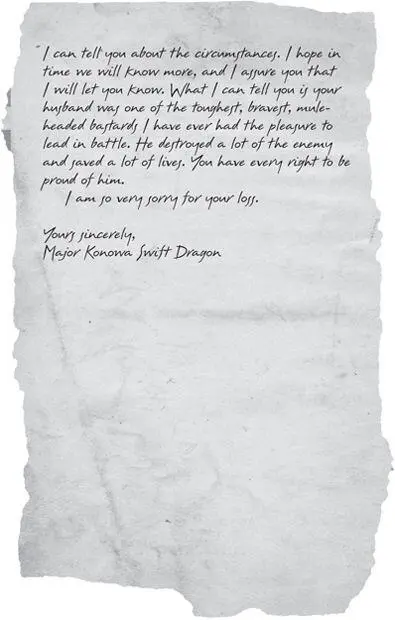 I can tell you about the circumstances. I hope in
time we will know more, and I assure you that
I will let you know. What I can tell you is your
husband was one of the toughest, bravest, mule-
headed bastards I have ever had the pleasure to
lead in battle. He destroyed a lot of the enemy
and saved a lot of lives. You have every right to be
proud of him.
I am so very sorry for your loss.
Yours sincerely,
Major Konowa Swift Dragon